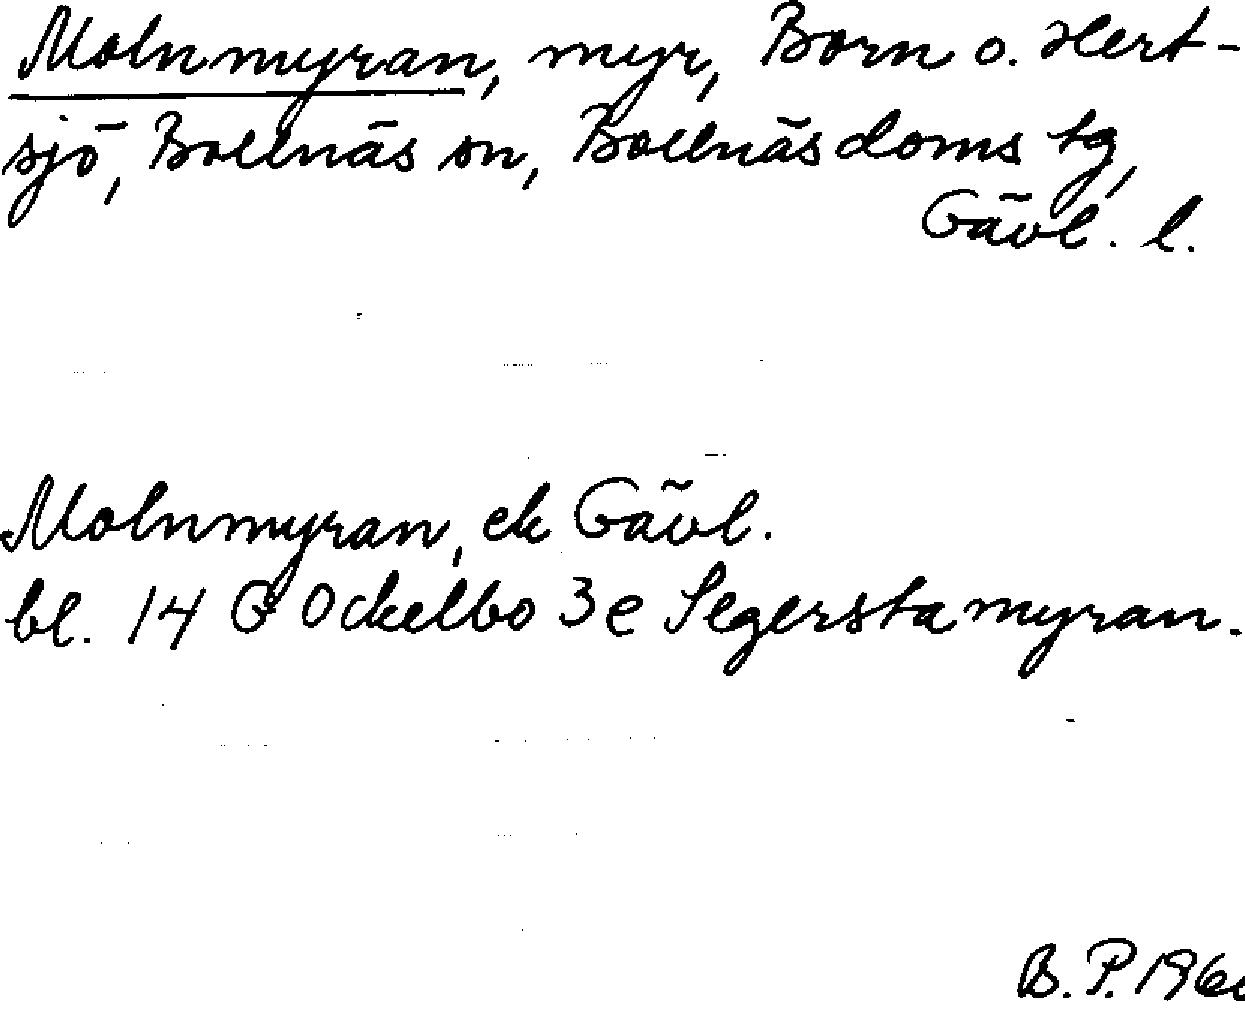 Molnmyran, myr, Born o. Hert-
sjö, Bollnäs sn, Bollnäs doms tg,
Gävl. l.
Molnmyran, ek Gävl.
bl. 14 G Ockelbo 3 e Segerstamyran.
B. P.